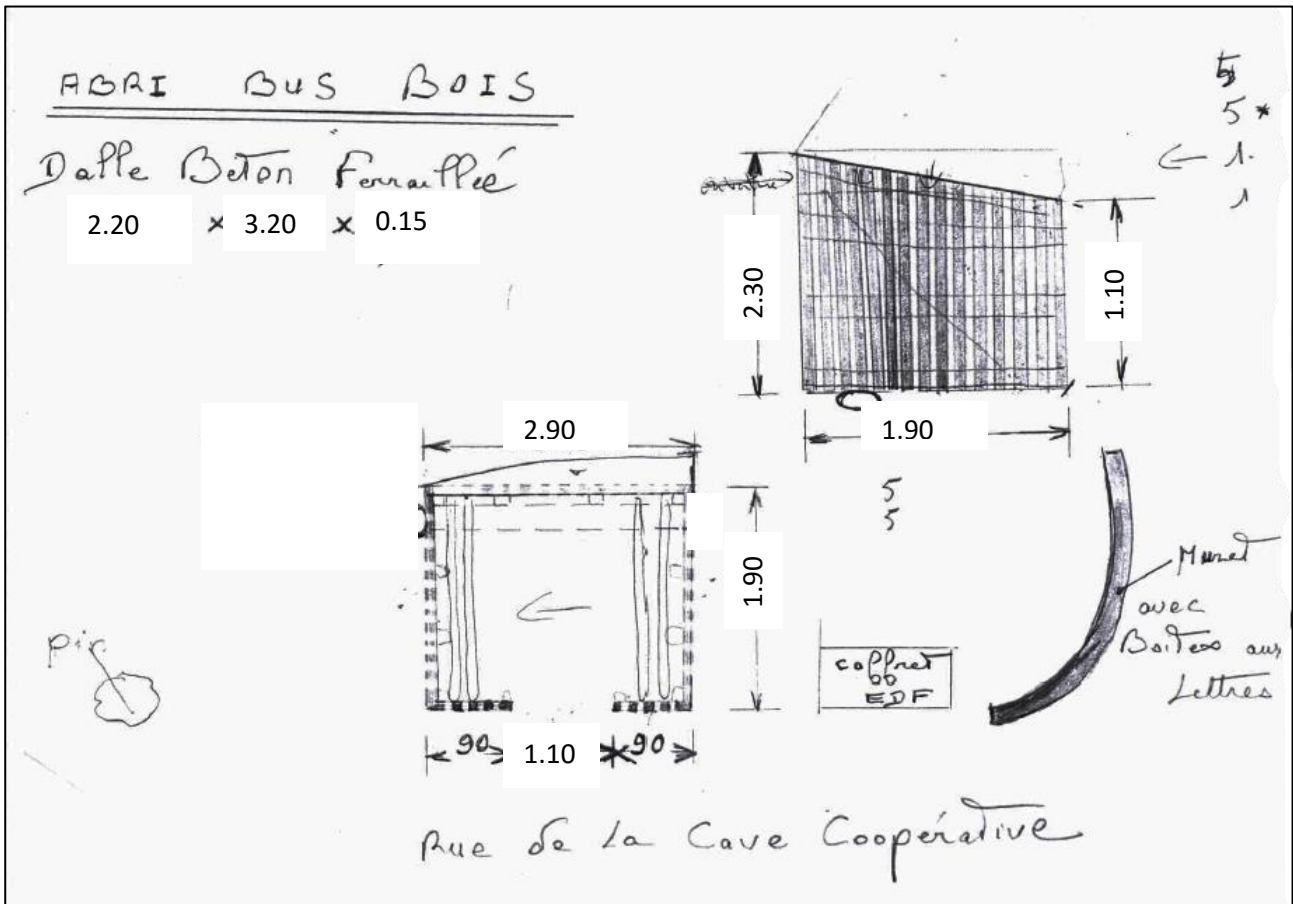 ABRI BUS BOIS
Dalle Beton Ferraillée
2.20 × 3.20 × 0.15
5 *
← 1.
1
2.30
1.10
1.90
2.90
5
5
1.90
Muret
avec
Boites aux
Lettres
coffret
EDF
pin
90 1.10 90
Rue de La Cave Coopérative